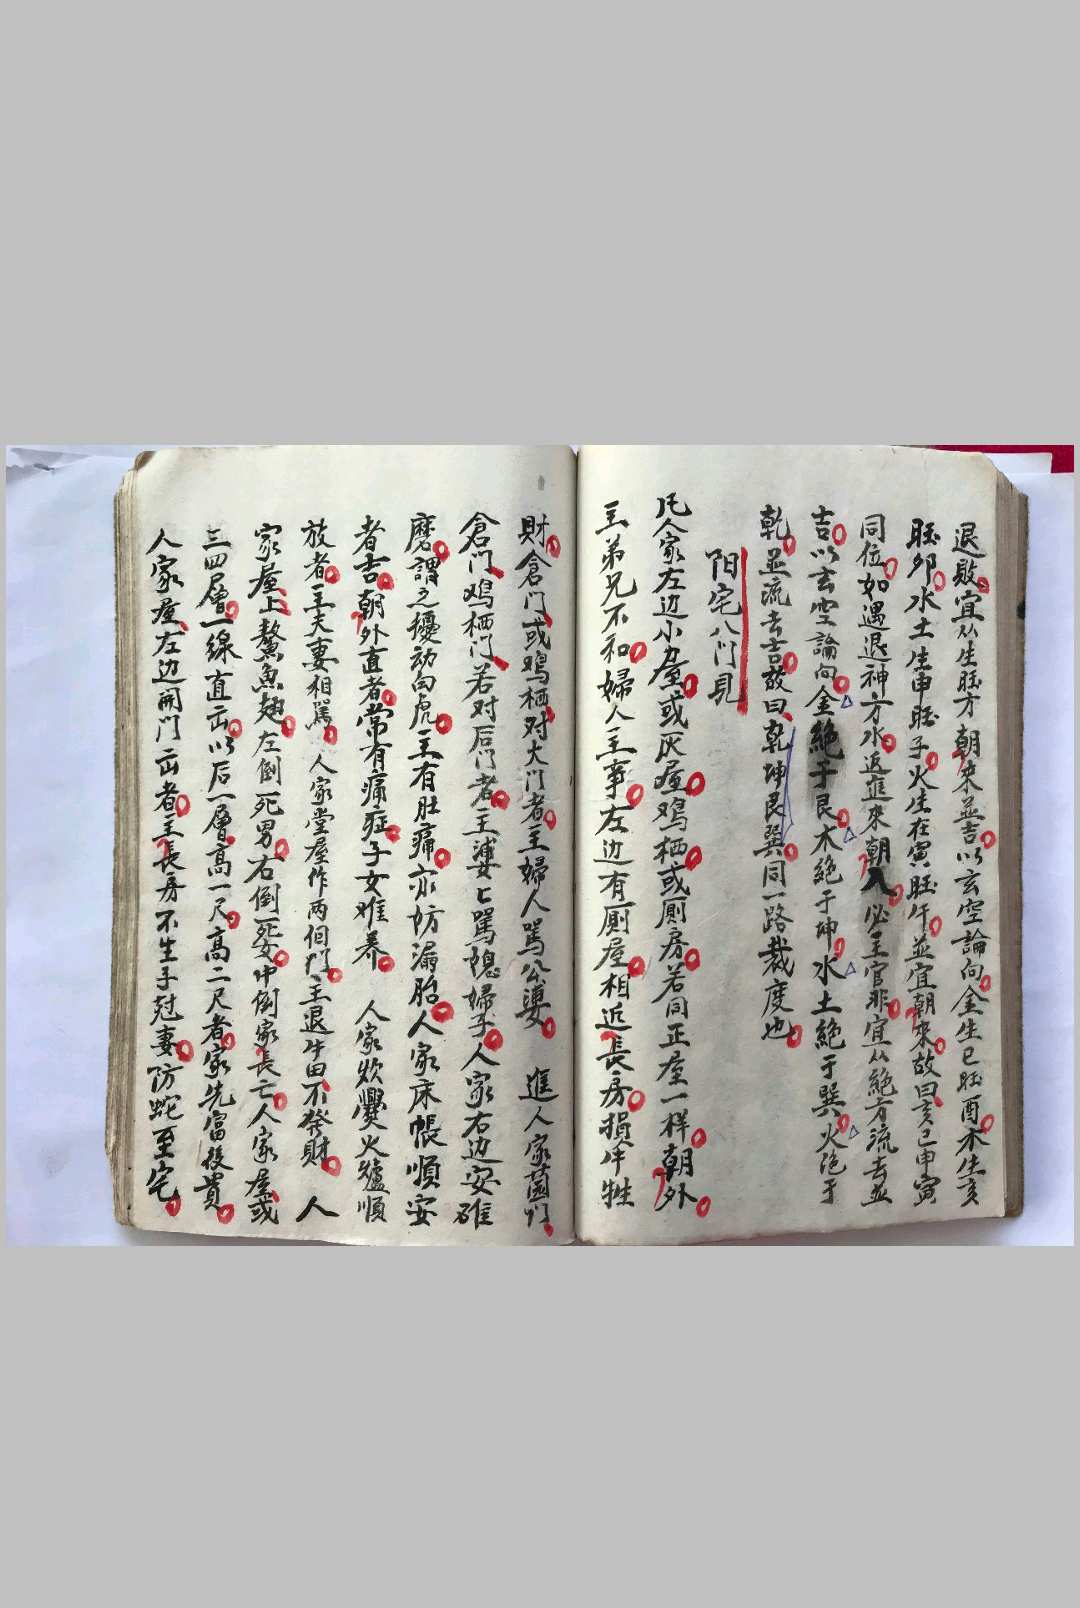 退敗宜从生旺方朝來並吉以玄空論向金生巳旺酉木生亥
旺卯水土生申旺子火生在寅旺午並宜朝來故曰亥巳申寅
同位如遇退神方水返進來朝入必主官非宜从絕方流去並
吉以玄空論向金絕于艮木絕于坤水土絕于巽火絕于
乾並流去吉故曰乾坤艮巽同一路裁度也
阳宅八门見
凡人家左边小屋或灰屋鸡栖或厠房若同正屋一样朝外
主弟兄不和婦人主事左边有厠屋相近長房損牛牲
財倉门或鸡栖对大门者主婦人罵公婆 進人家菌门
倉门鸡栖门若对后门者主婆亡罵媳婦子人家右边安碓
磨謂之擾动白虎主有肚痛亦妨漏胎人家床帳順安
者吉朝外直者常有痛症子女难养 人家炊爨火爐順
放者主夫妻相罵 人家堂屋作两個門主退牛田不發財 人
家屋上鰲魚翅左倒死男右倒死女中倒家長亡人家屋或
三四層一線直出以后一層高一尺高二尺者家先富後貴
人家屋左边開门出者主長房不生子尅妻防蛇至宅